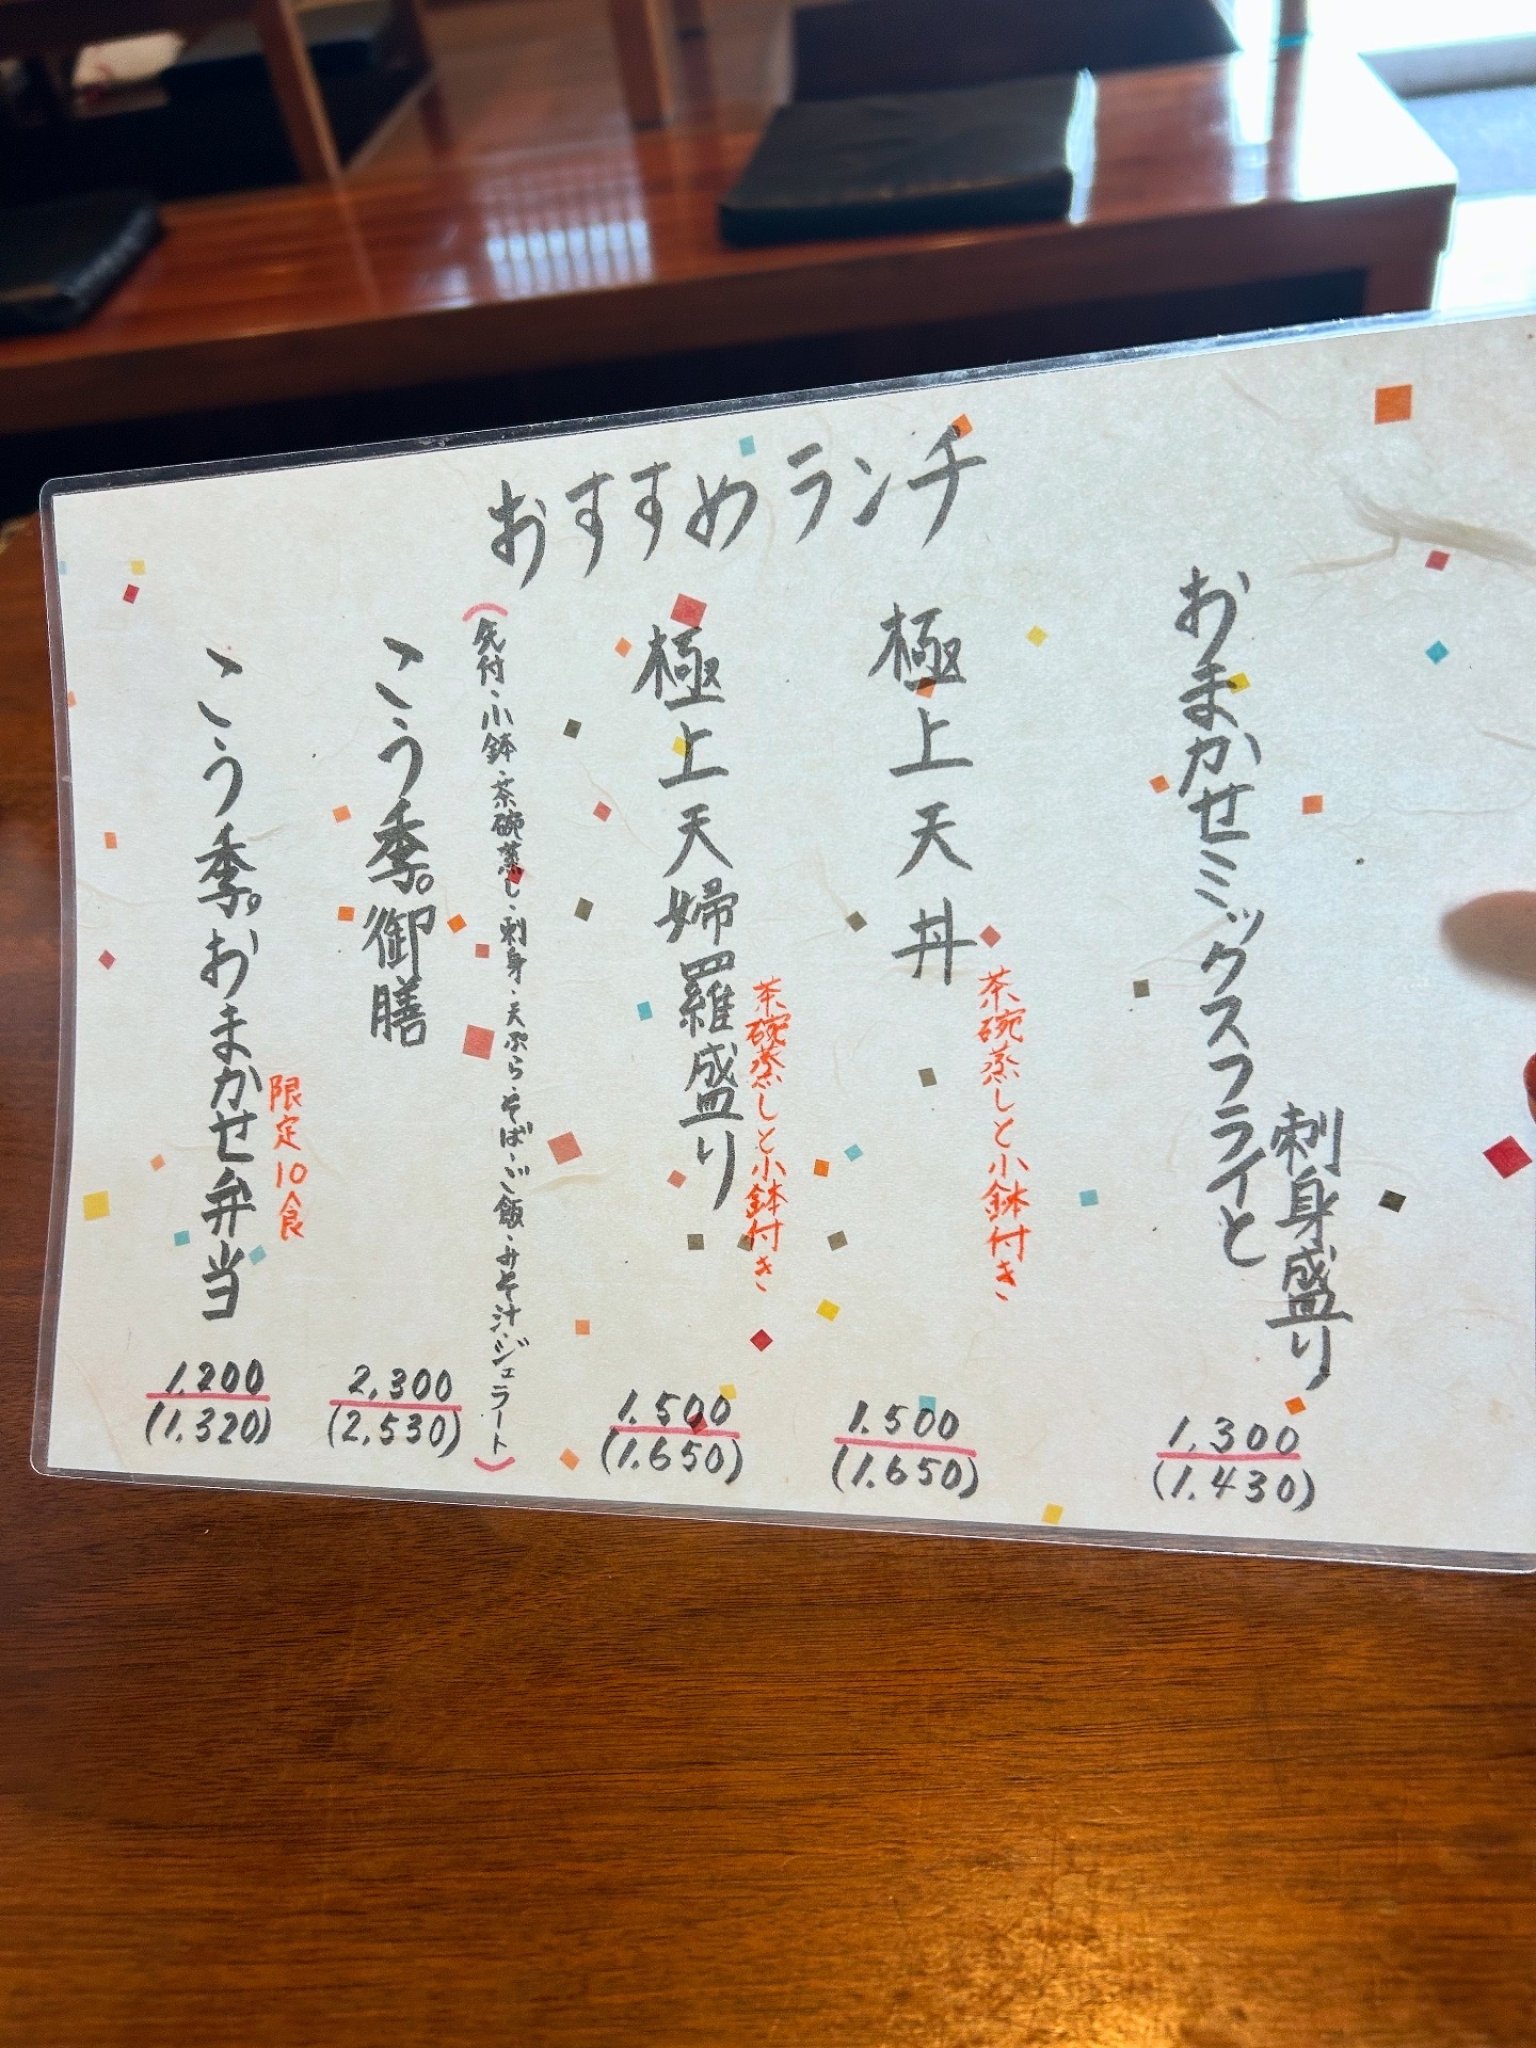 おすすめランチ
おまかせミックスフライと
刺身盛り
1,300
(1,430)
極上天丼
茶碗蒸しと小鉢付き
1,500
(1,650)
極上天婦羅盛り
茶碗蒸しと小鉢付き
1,500
(1,650)
こう季。御膳
(先付・小鉢・茶碗蒸し・刺身・天ぷら・そば・ご飯・みそ汁・ジェラート)
2,300
(2,530)
こう季。おまかせ弁当
限定10食
1,200
(1,320)